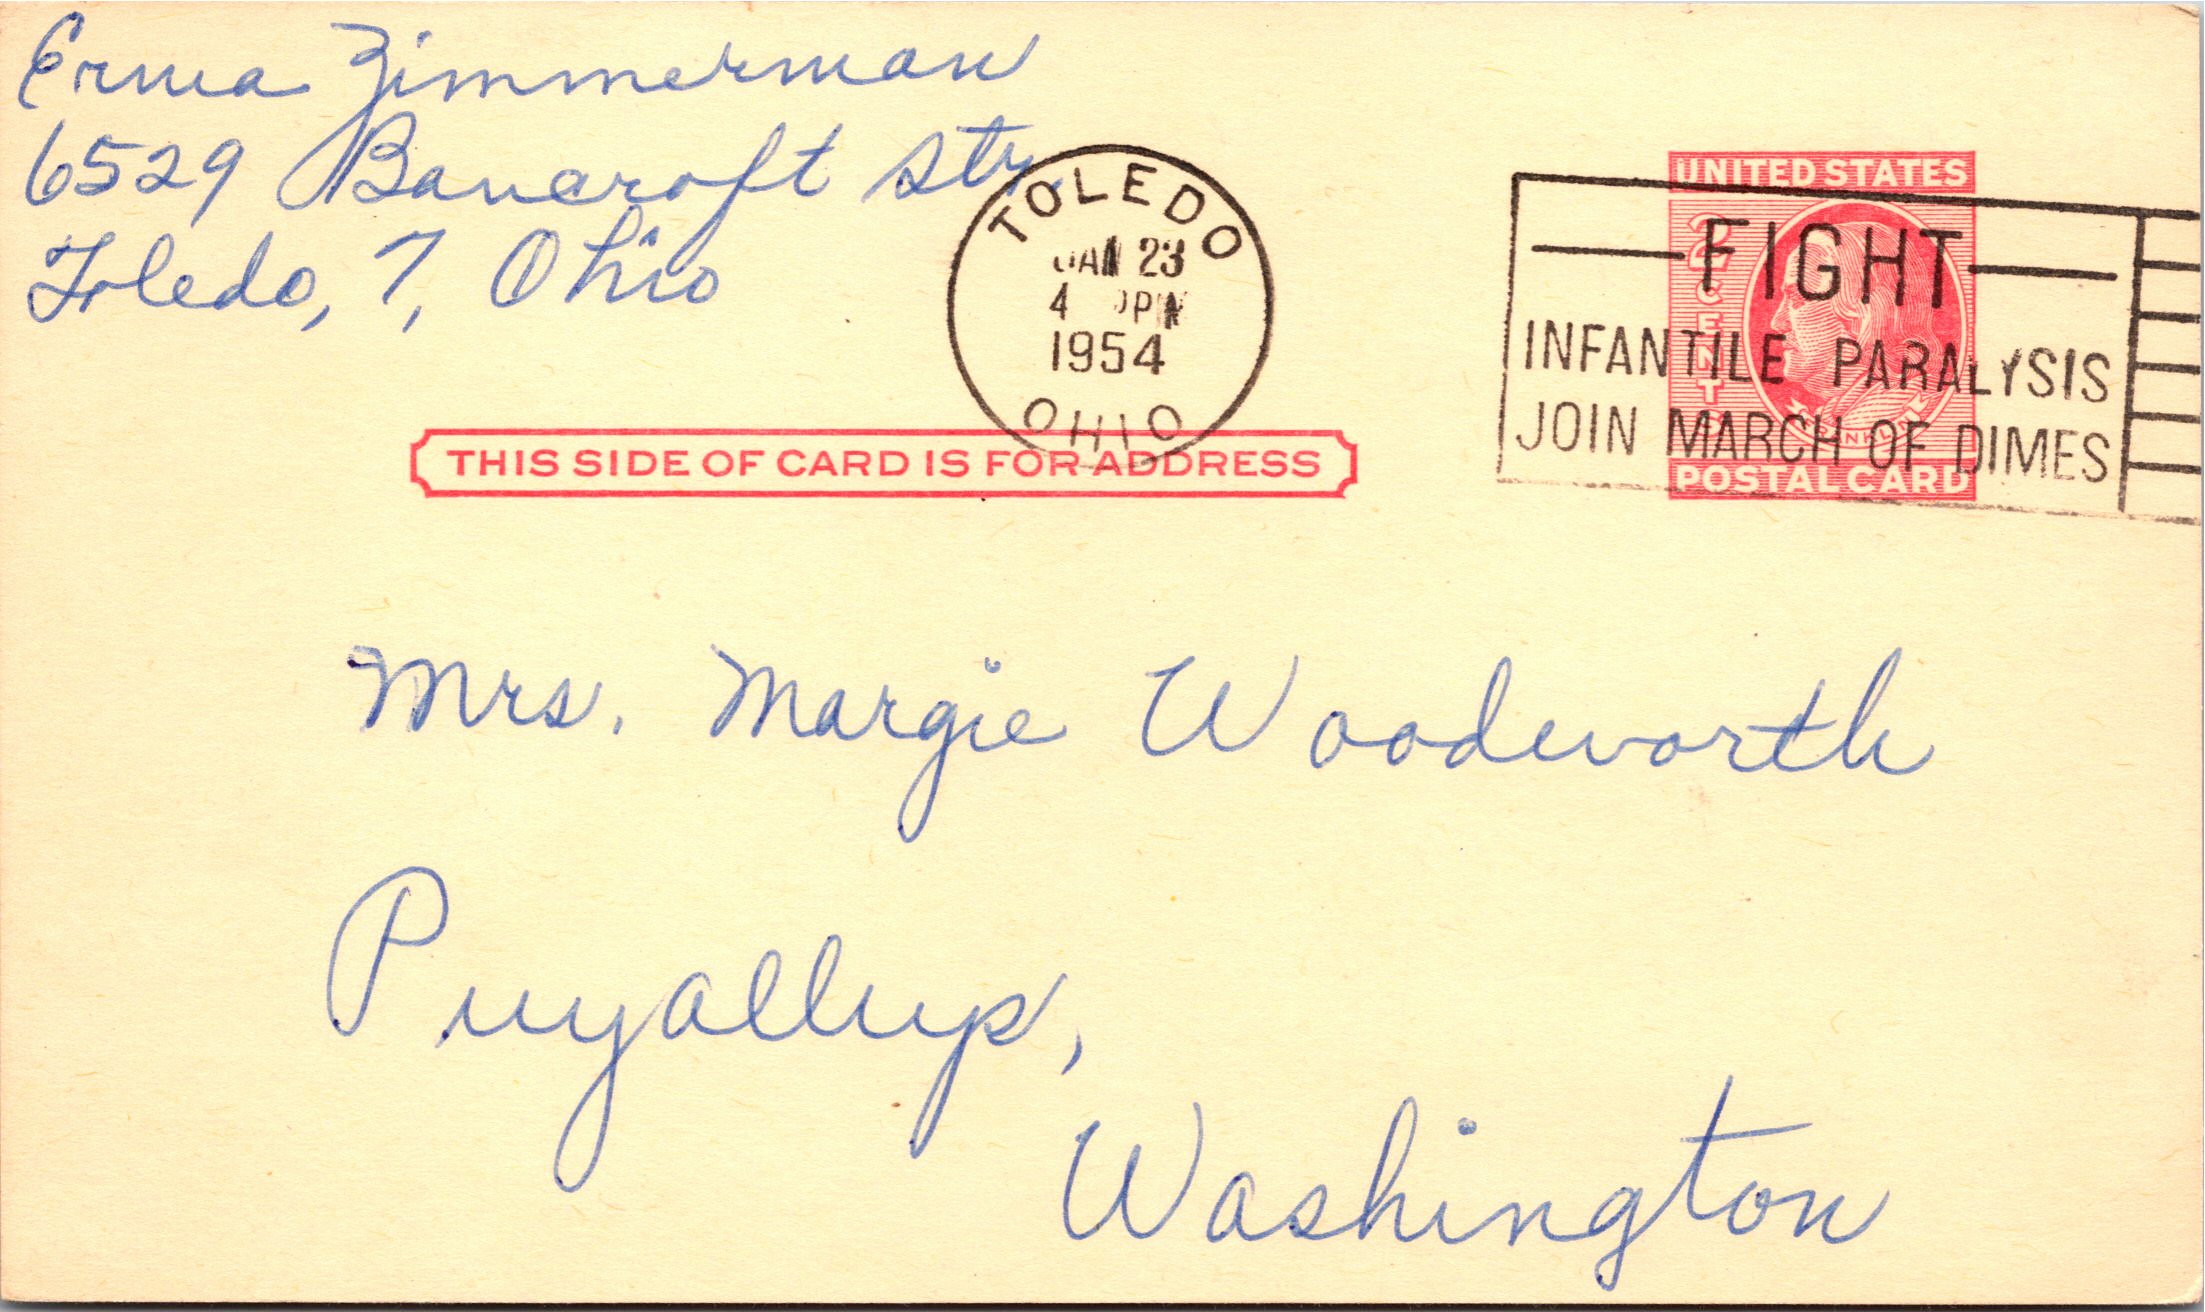 Erma Zimmerman
6529 Bancroft Str.
Toledo, 7, Ohio
TOLEDO
JAN 23
4 PM
1954
OHIO
UNITED STATES
2 CENTS
FRANKLIN
POSTAL CARD
FIGHT
INFANTILE PARALYSIS
JOIN MARCH OF DIMES
THIS SIDE OF CARD IS FOR ADDRESS
Mrs. Margie Woodworth
Puyallup,
Washington